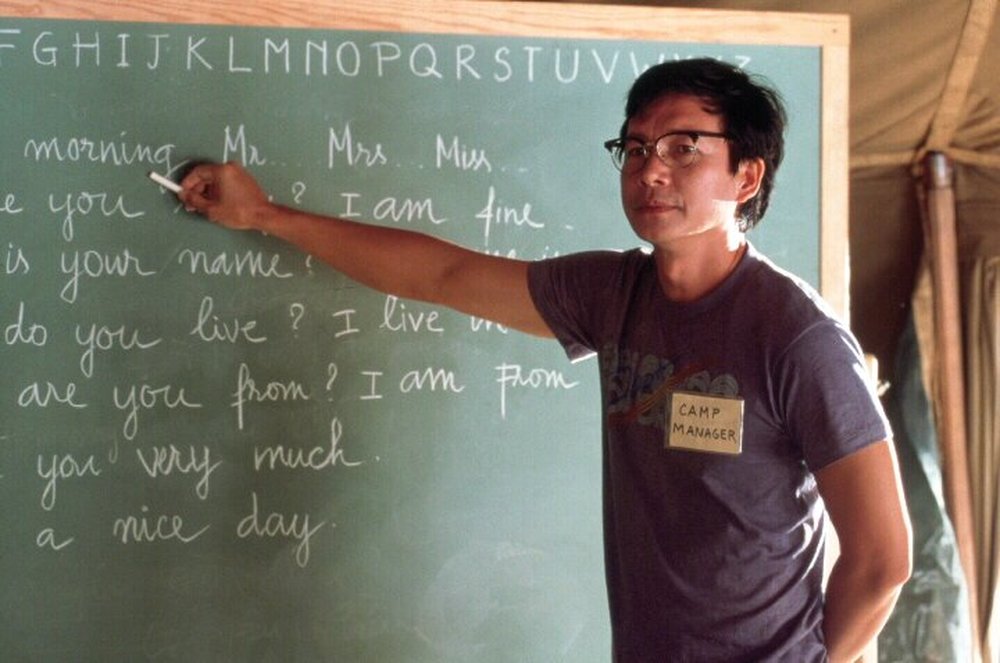 F G H I J K L M N O P Q R S T U V W X Y Z
morning Mr... Mrs... Miss...
you ? I am fine.
is your name?
do you live? I live in
are you from? I am from
you very much.
a nice day.
CAMP
MANAGER